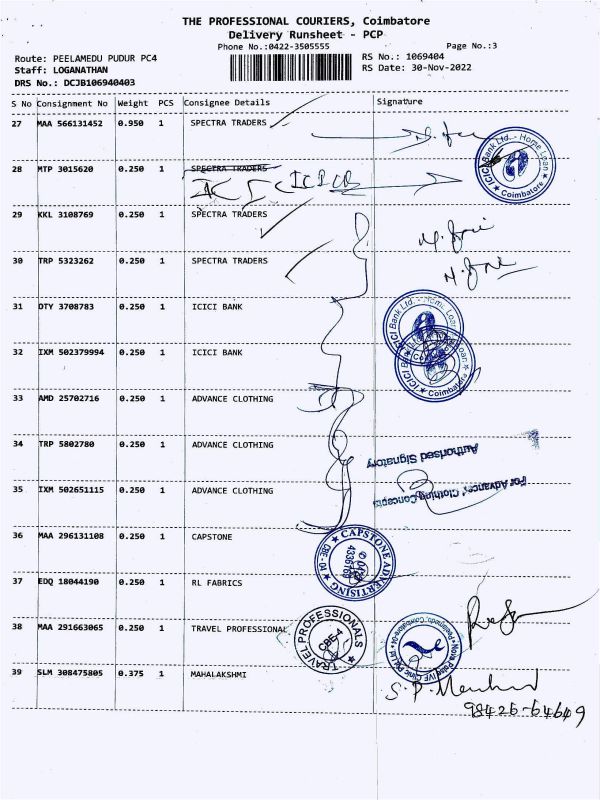 THE PROFESSIONAL COURIERS, Coimbatore
Delivery Runsheet - PCP
Phone No.:0422-3505555
Page No.:3
Route: PEELAMEDU PUDUR PC4
RS No.: 1069404
Staff: LOGANATHAN
RS Date: 30-Nov-2022
DRS No.: DCJB106940403
S No Consignment No Weight PCS Consignee Details Signature
27 MAA 566131452 0.950 1 SPECTRA TRADERS
28 MTP 3015620 0.250 1 SPECTRA TRADERS
ICICI
ICICI Bank Ltd.- Home Loan
Coimbatore
29 KKL 3108769 0.250 1 SPECTRA TRADERS
30 TRP 5323262 0.250 1 SPECTRA TRADERS
31 DTY 3708783 0.250 1 ICICI BANK
ICICI Bank Ltd.- Home Loan
32 IXM 502379994 0.250 1 ICICI BANK
Coimbatore
33 AMD 25702716 0.250 1 ADVANCE CLOTHING
34 TRP 5802780 0.250 1 ADVANCE CLOTHING
Authorised Signatory
35 IXM 502651115 0.250 1 ADVANCE CLOTHING
For Advance' Clothing Concepts
36 MAA 296131108 0.250 1 CAPSTONE
CAPSTONE ADVERTISING
CBE-04
37 EDQ 18044190 0.250 1 RL FABRICS
38 MAA 291663065 0.250 1 TRAVEL PROFESSIONAL
TRAVEL PROFESSIONALS
CBE-4
39 SLM 308475805 0.375 1 MAHALAKSHMI
98426-64649